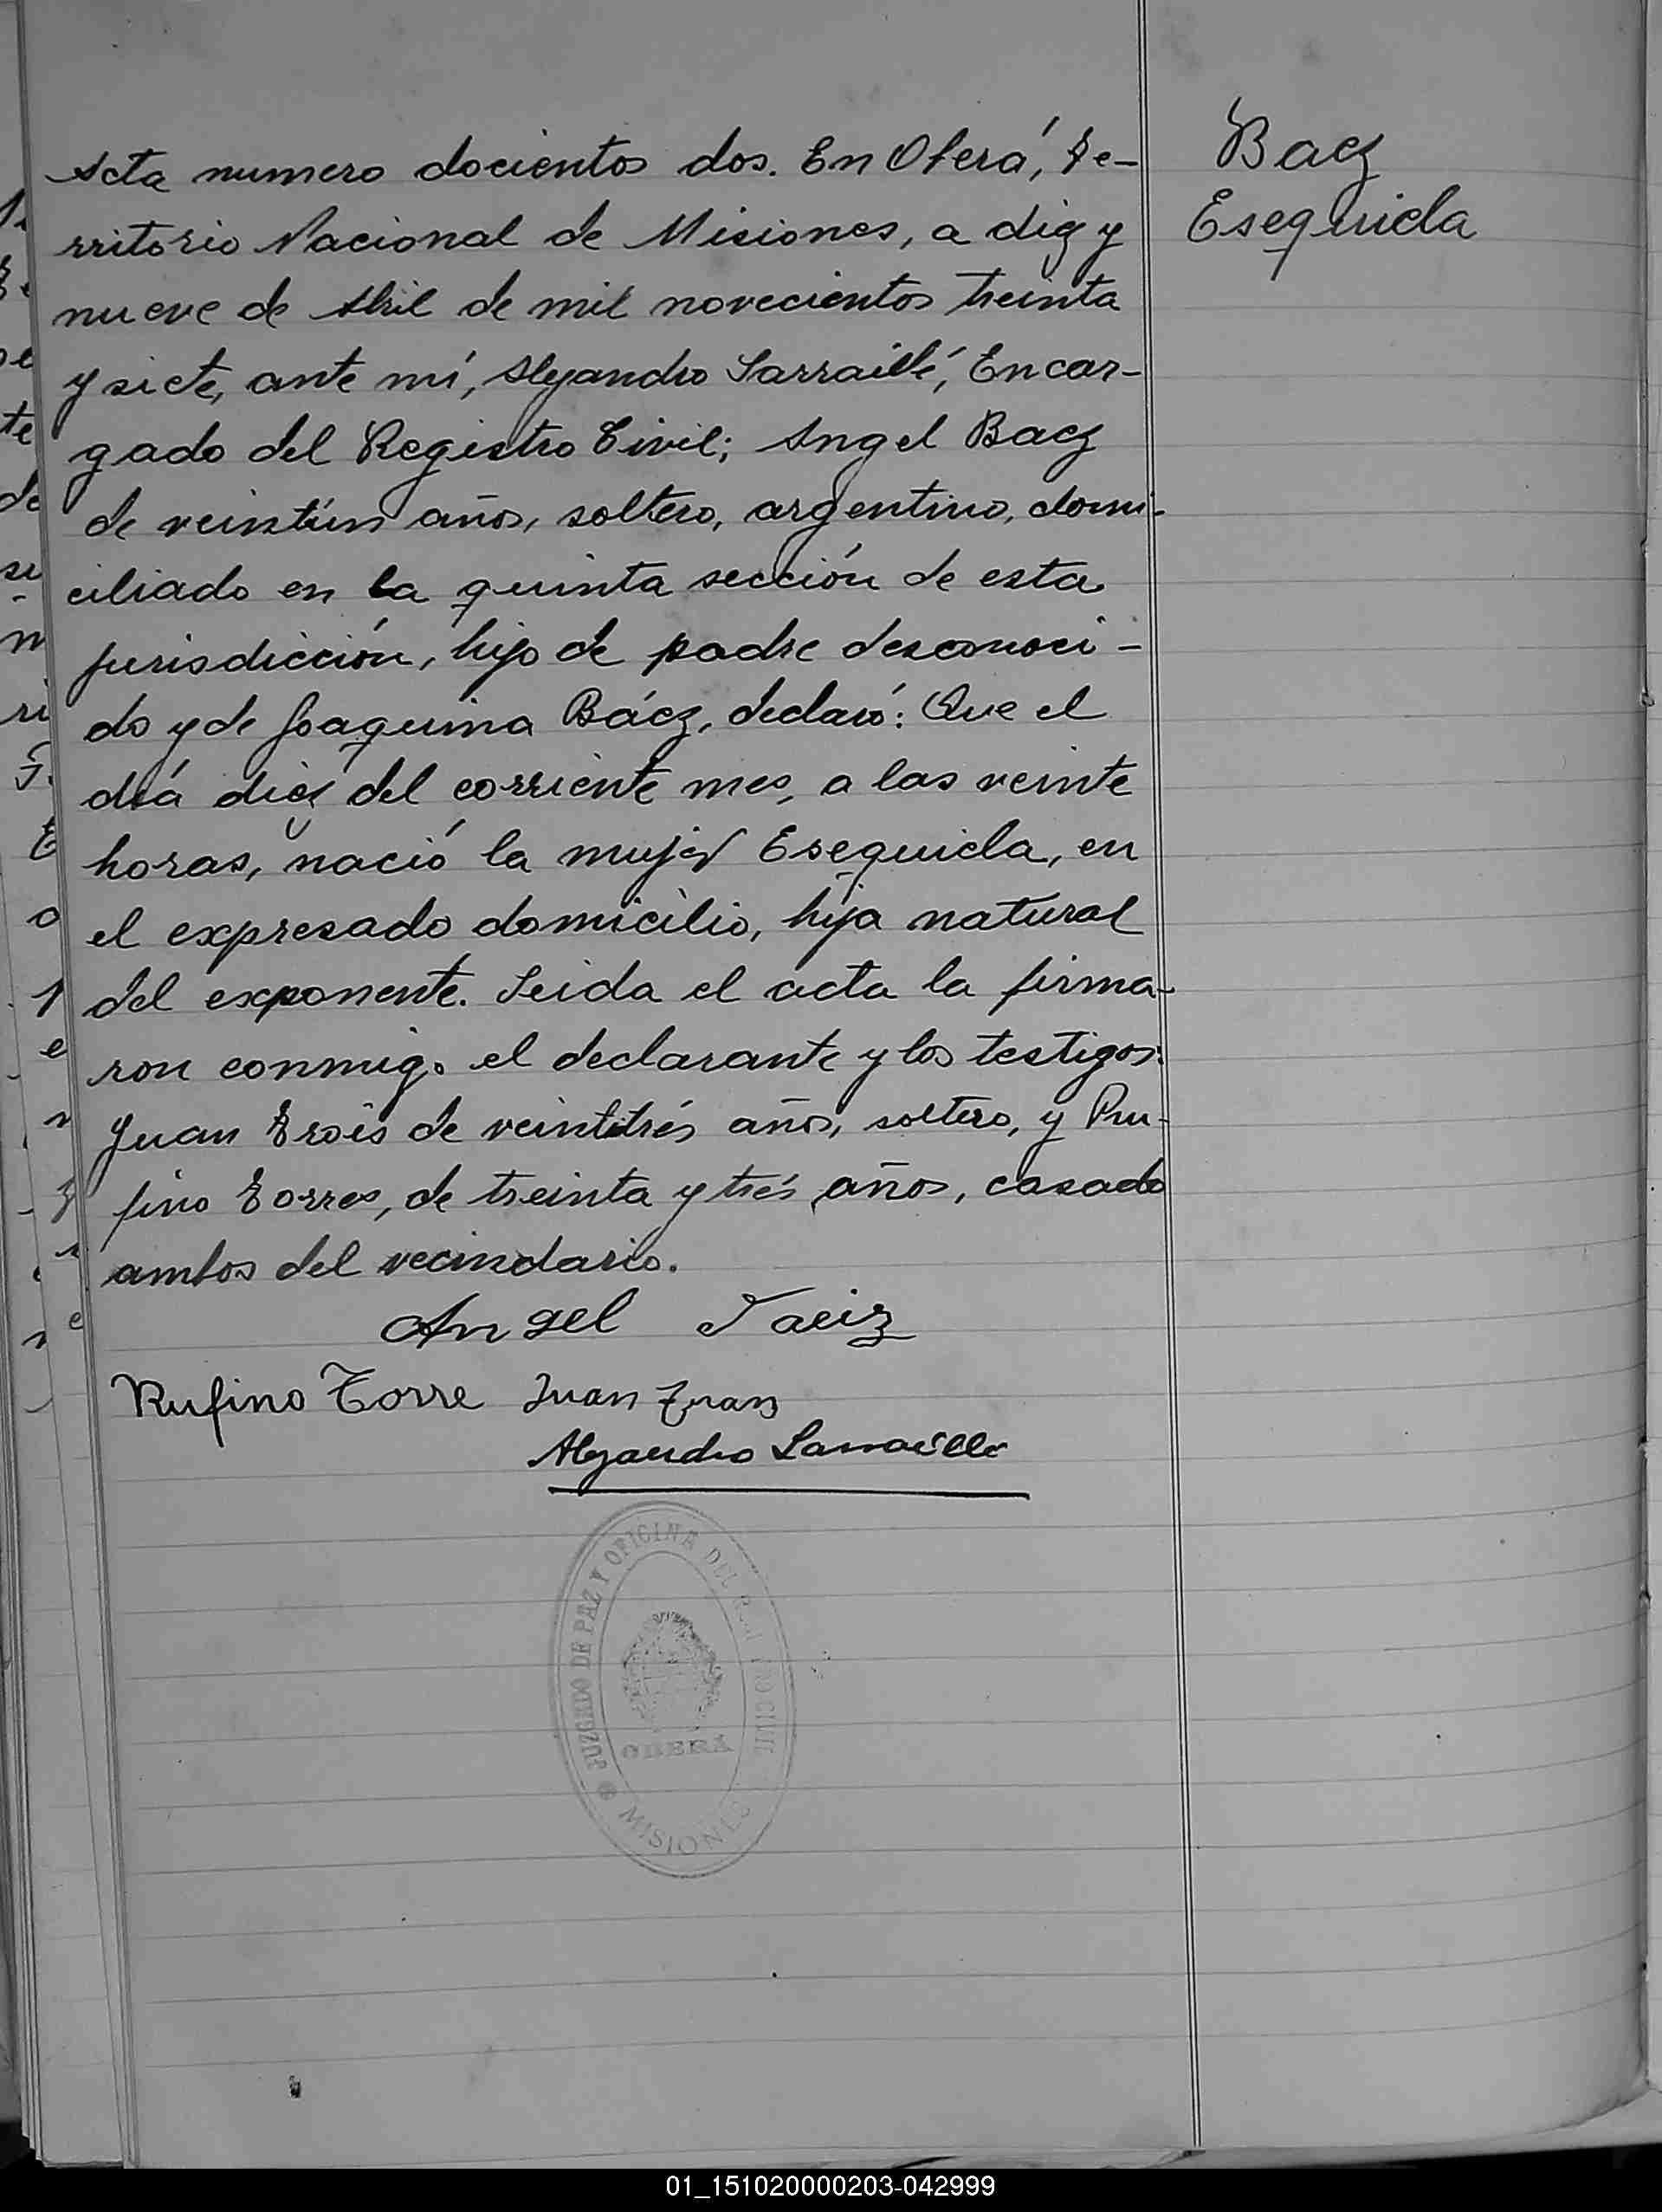 Baez
Esequiela
Acta numero docientos dos. En Oberá, Te-
rritorio Nacional de Misiones, a diez y
nueve de Abril de mil novecientos treinta
y siete, ante mí, Alejandro Sarraillé, Encar-
gado del Registro Civil; Angel Baez
de veintiún años, soltero, argentino, domi-
ciliado en la quinta sección de esta
jurisdicción, hijo de padre desconoci-
do y de Joaquina Báez, declaró: Que el
día diez del corriente mes, a las veinte
horas, nació la mujer Esequiela, en
el expresado domicilio, hija natural
del exponente. Leida el acta la firma-
ron conmigo el declarante y los testigos:
Juan de veintitrés años, soltero, y Ru-
fino Torres, de treinta y tres años, casado
ambos del vecindario.
Angel
Rufino Torre Juan
Alejandro Sarraillé
JUZGADO DE PAZ Y OFICINA DEL REGISTRO CIVIL
OBERA
MISIONES
01_151020000203-042999